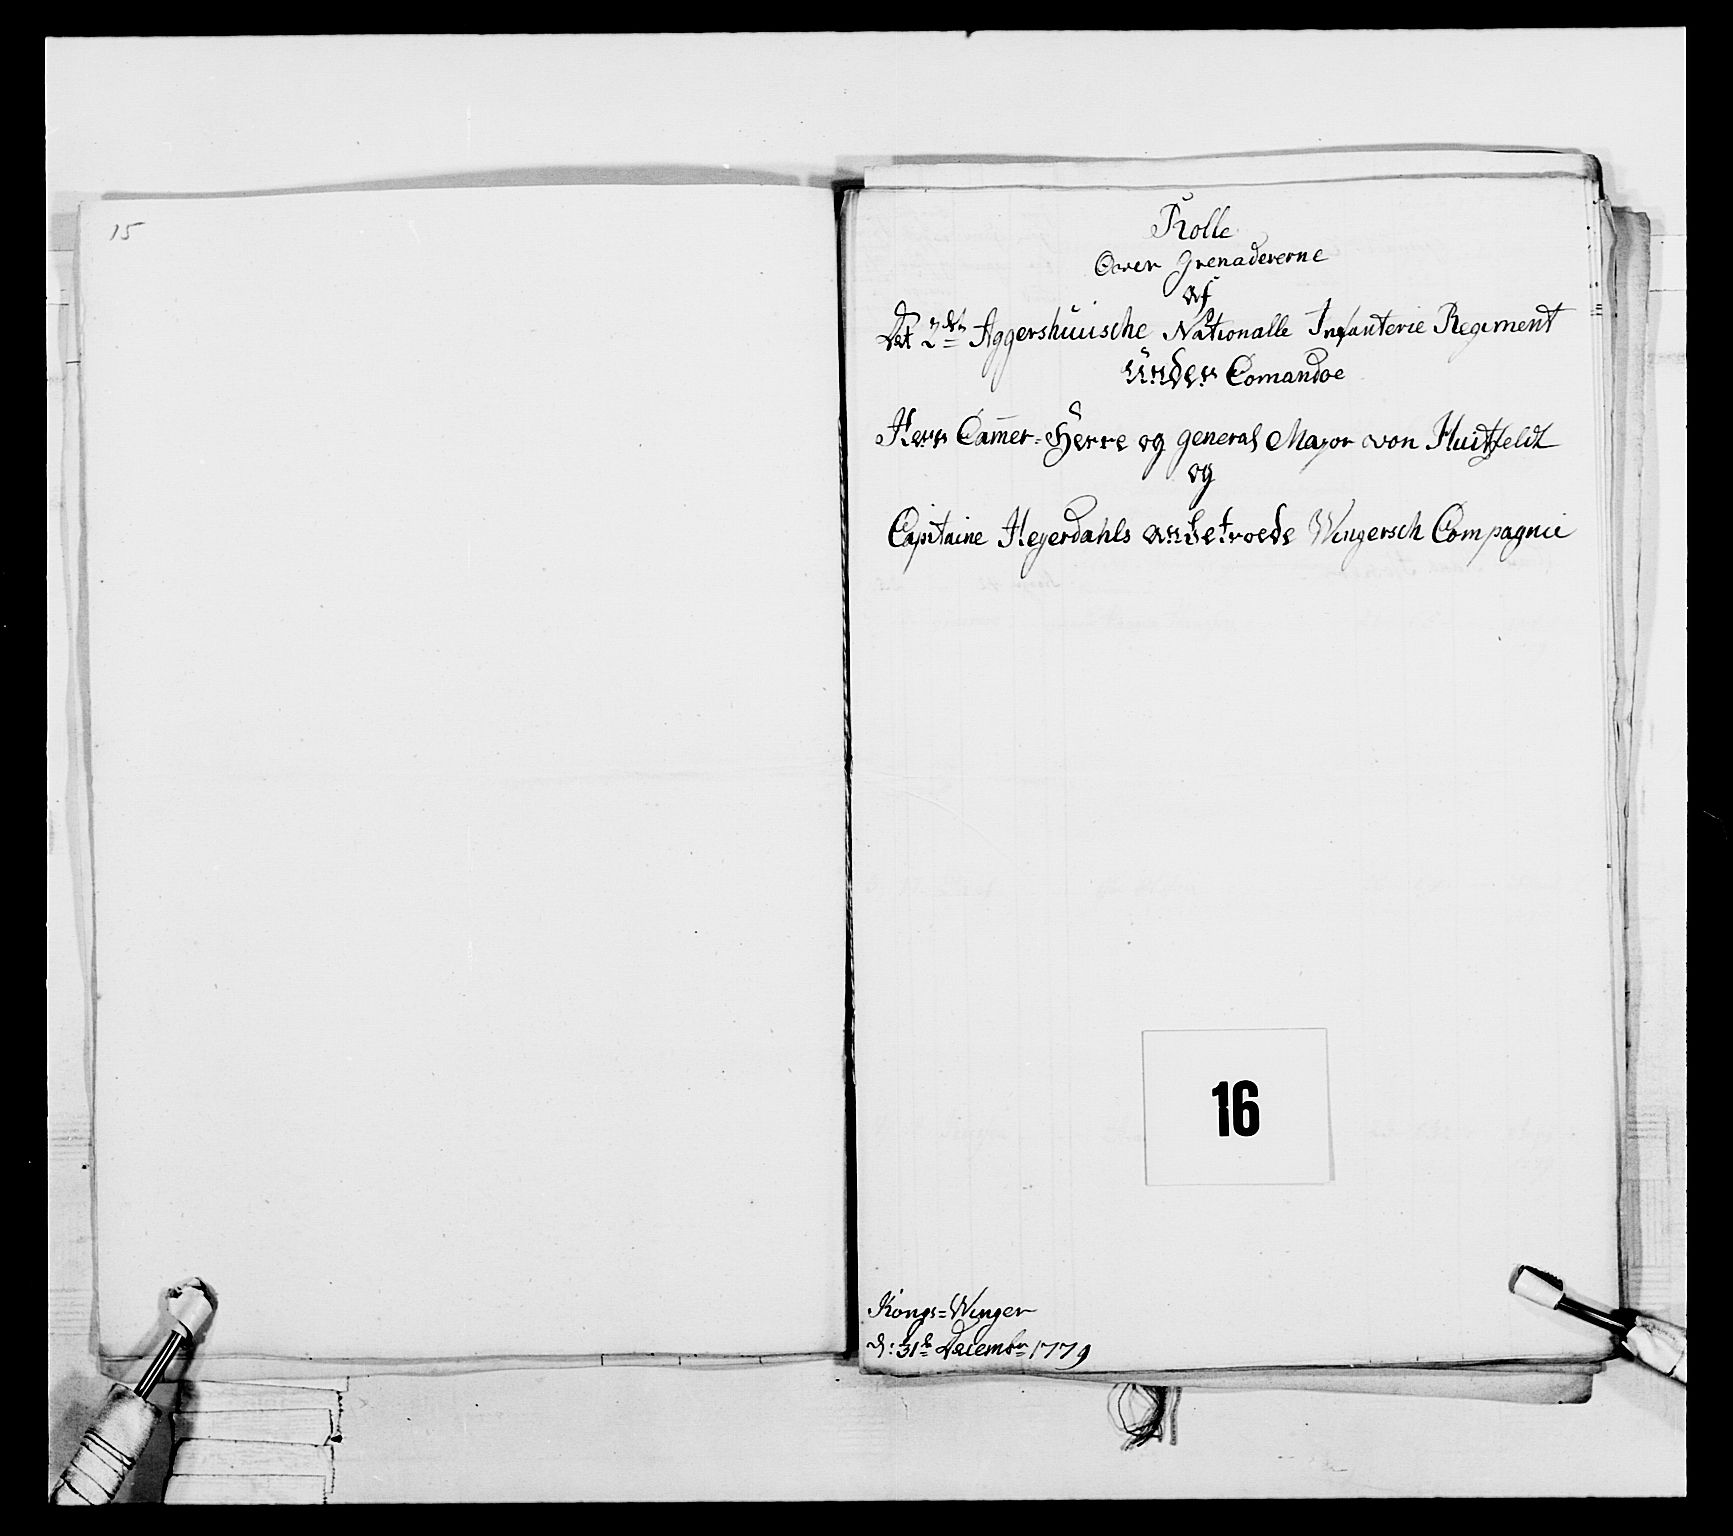 15
Rolle
Over Grenadererne
af
Det 2det Aggershuusche Nationalle Infanterie Regiment
Ünder Comandoe
Herr Cam̄er-Herre og general Major von Huitfeldt
og
Capitaine Heyerdahls anbetroede Wingersch Compagnie
16
Kongs=Winger
d: 31te Decembr 1779